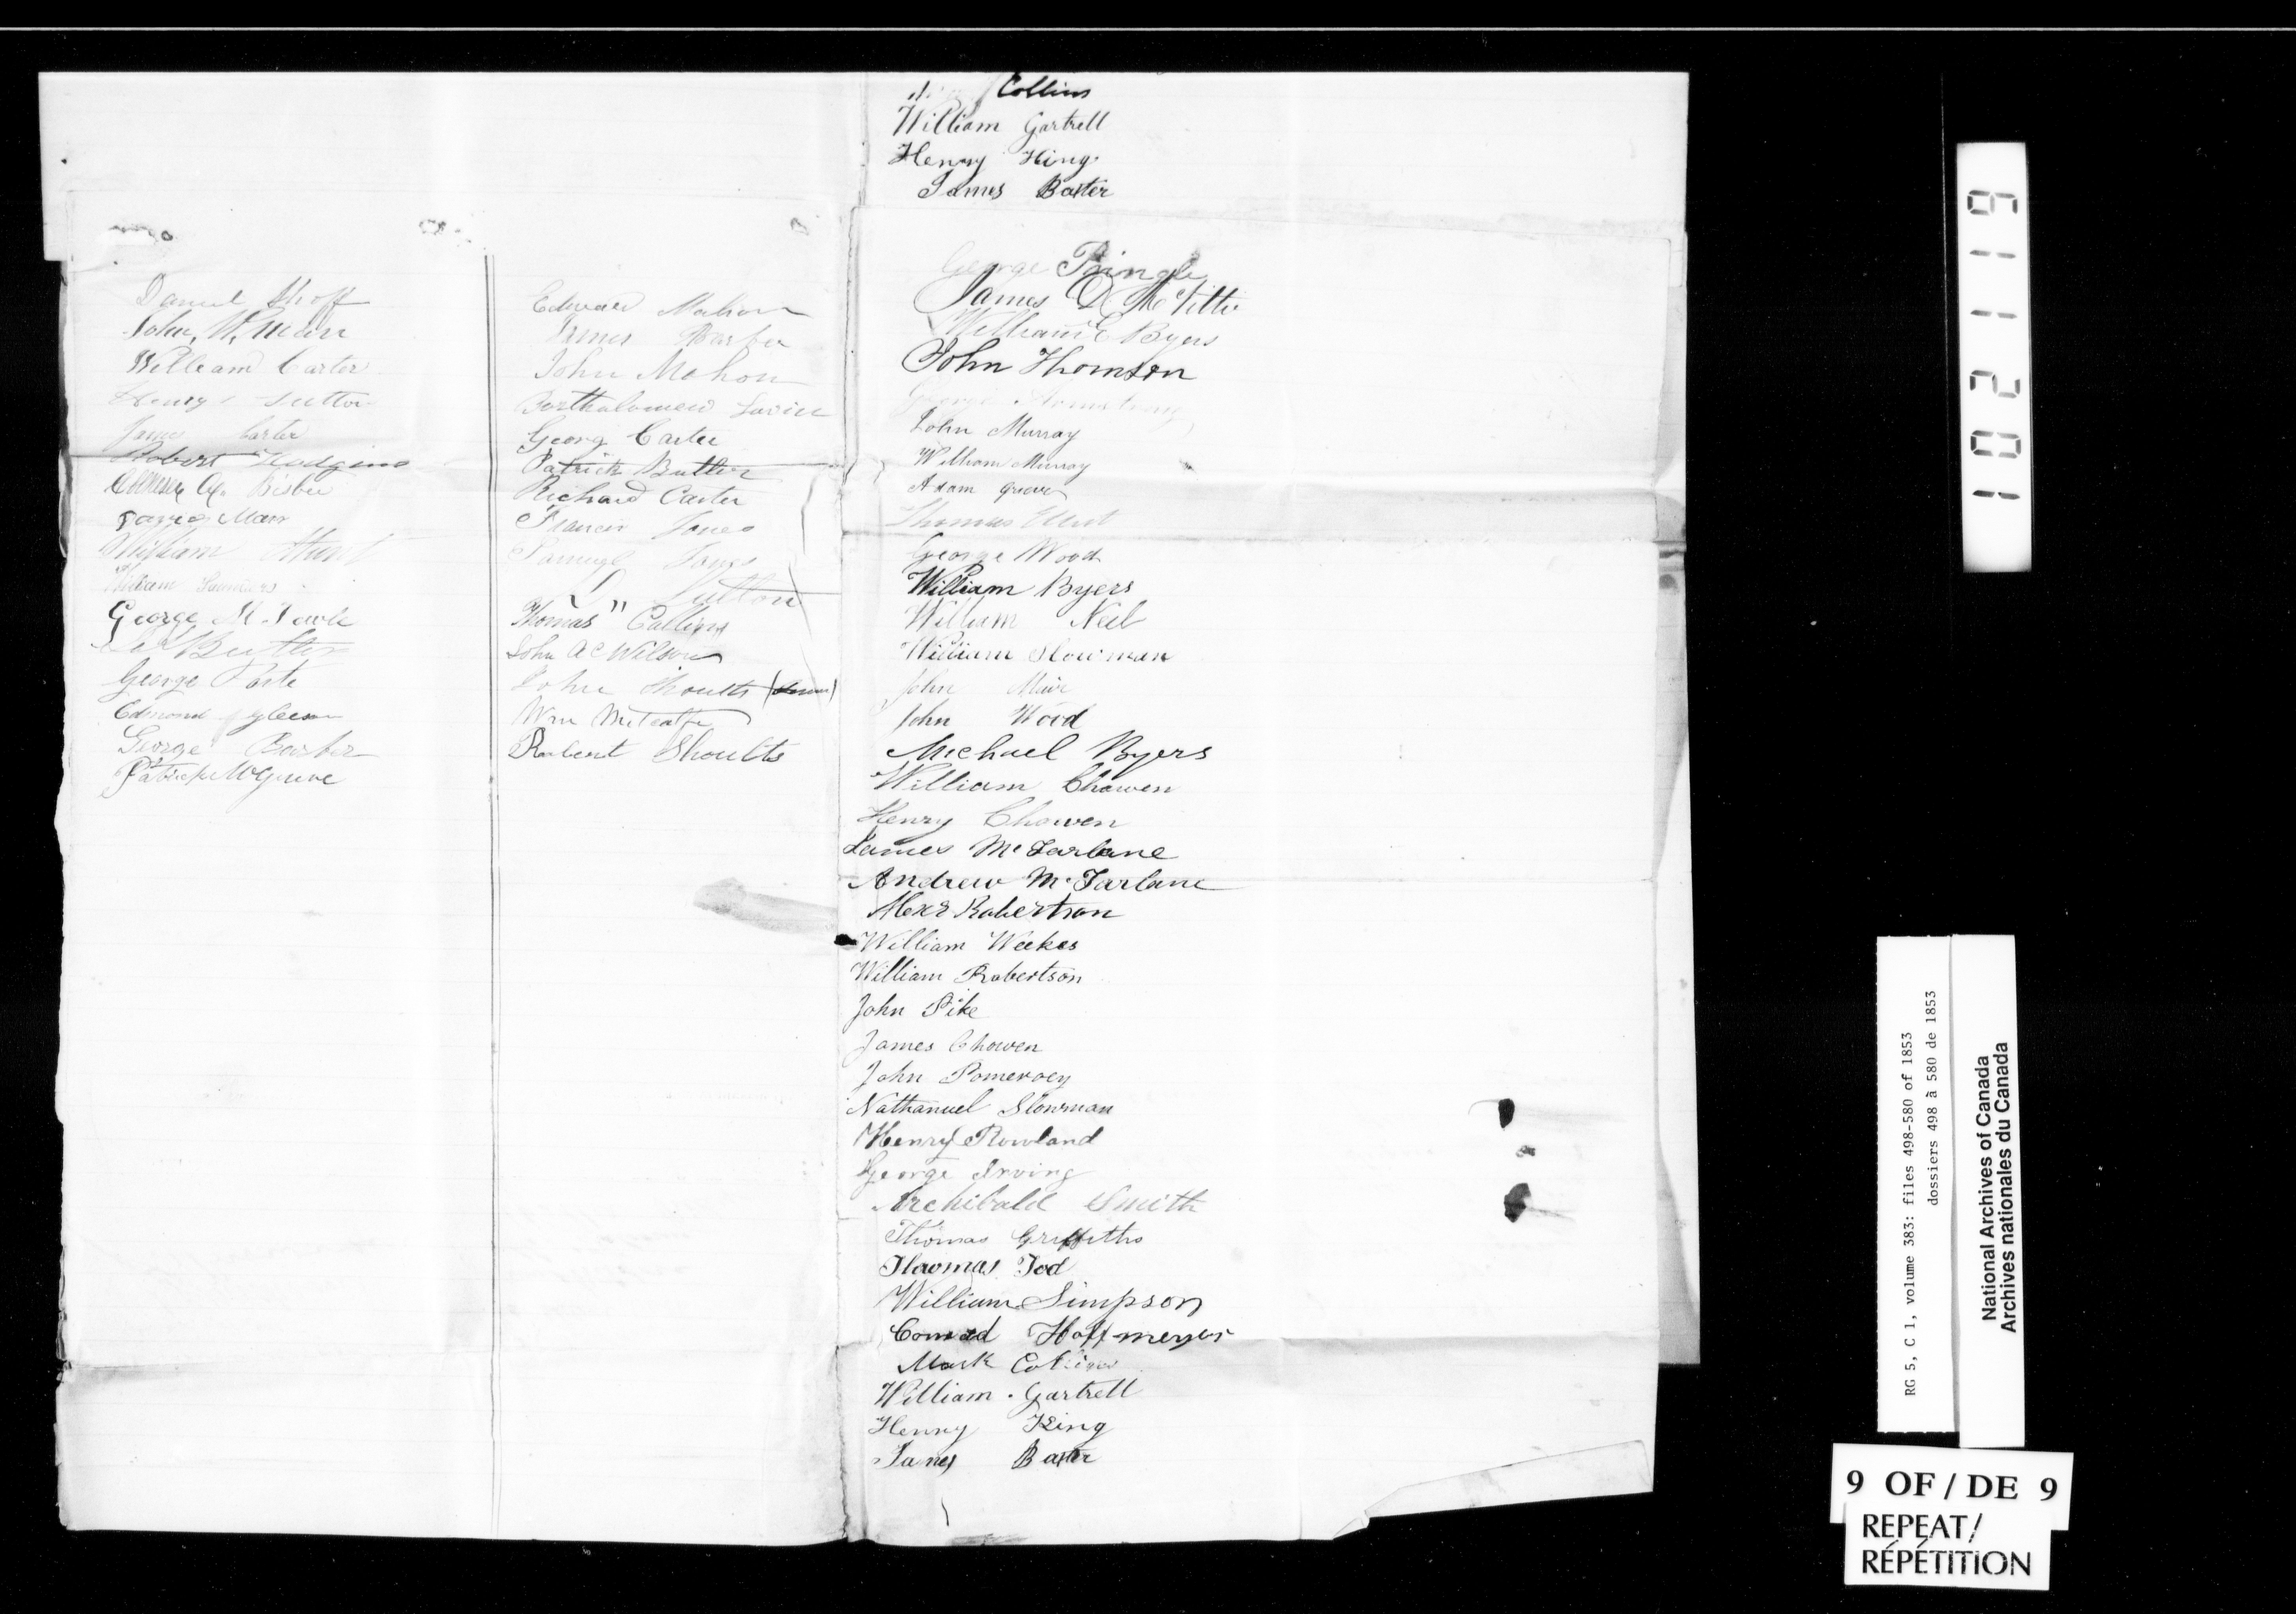 Collins
William Gartrell
Henry King
James Baxter
Daniel Shoff
John W. Mair
William Carter
Henry Sutton
James Carter
Robert Hodgins
Bisbee
David Marr
William
William Saunders
George M.
Butler
George
Edmond Gleeson
George Barber
Patrick McGuire
Edward Mahon
James Barber
John Mahon
Bartholomew
Georg Carter
Patrick Butler
Richard Carter
Francis Jones
Samuel Jones
Sutton
Thomas " Collins
John A C Wilson
John Shoults
Wm Metcalfe
Robert Shoults
George Pringle
James D McTittie
William E Byers
John Thomson
George Armstrong
John Murray
William Murray
Adam Grieve
Thomas
George Wood
William Byers
William Neil
William Slowman
John Muir
John Wood
Michael Byers
William Chowen
Henry Chowen
James McFarlane
Andrew McFarlane
Alexr Robertson
William Weekes
William Robertson
John Pike
James Chowen
John Pomeroey
Nathanuel Slowman
Henry Rowland
George Irving
Archibald Smith
Thomas Griffiths
Thomas Tod
William Simpson
Conrad Hoffmeyer
Mark Collins
William . Gartrell
Henry King
James Baxter
102119
RG 5, C 1, volume 383: files 498-580 of 1853
dossiers 498 à 580 de 1853
National Archives of Canada
Archives nationales du Canada
9 OF / DE 9
REPEAT/
RÉPÉTITION